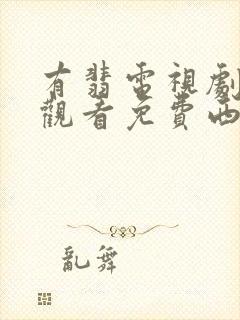 有翡電視劇
觀看免費西
亂舞